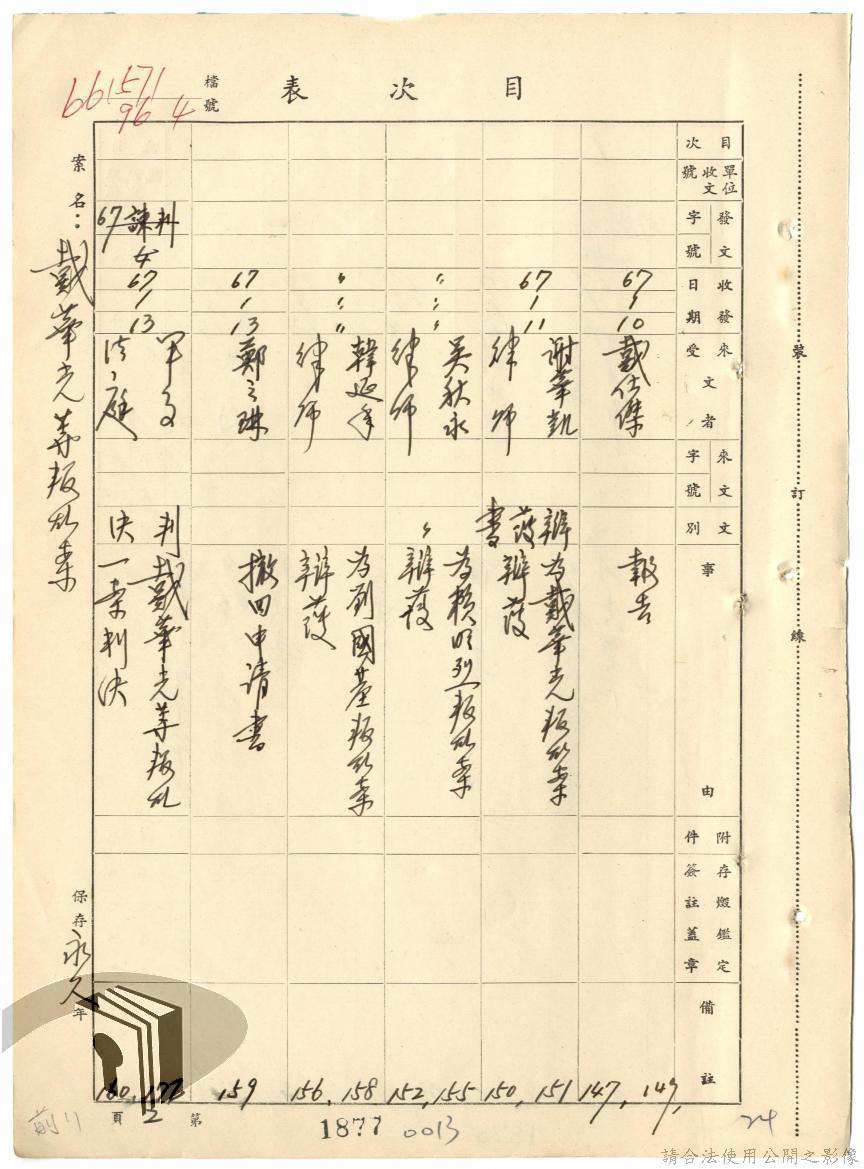 目次表
檔號
661571
96 4
目次
單位收文號
發文字號
收發日期
來文受文者
來文字號
文別
事由
附件
存燬鑑定簽註蓋章
備註
67 1 10
戴仕傑
報告
147, 149,
67 1 11
謝華凱
律師
辯護書
為戴華光叛亂案
辯護
150, 151
〃 〃 〃
吳秋永
律師
〃
為賴明烈叛亂案
辯護
152, 155
〃 〃 〃
韓延年
律師
為劉國基叛亂案
辯護
156, 158
67 1 13
鄭之琳
撤回申請書
159
67 諫判
67 1 13
法庭
判決
戴華光等叛亂
一案判決
160, 172
案名：戴華光等叛亂案
保存永久年
第2頁
1877
0013
24
裝訂線
請合法使用公開之影像